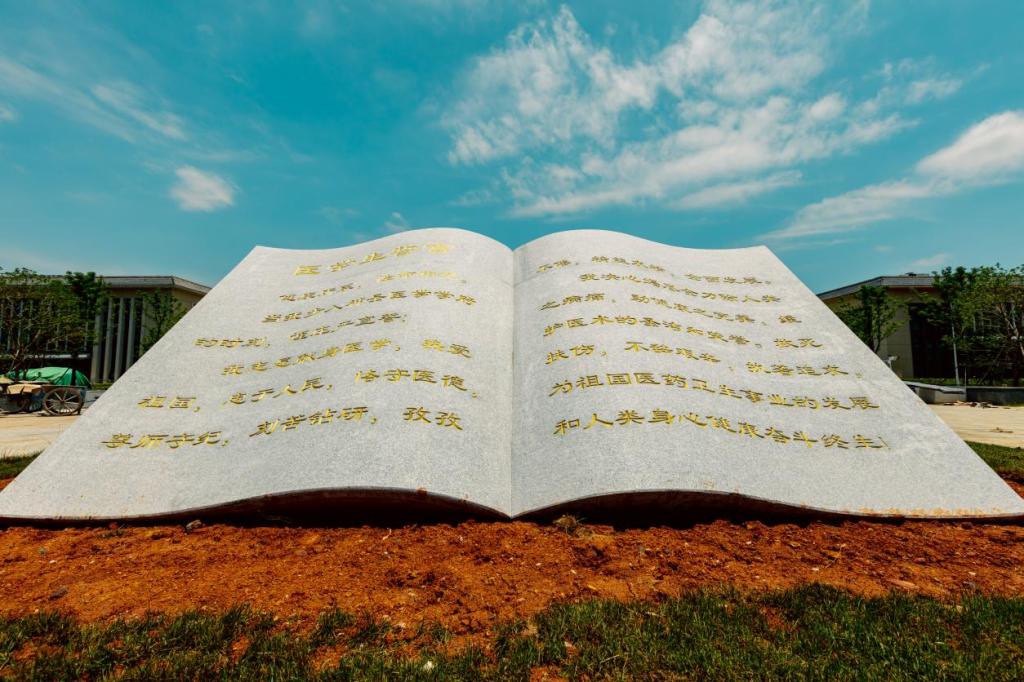 医学生誓言
健康所系，性命相托。
当我步入神圣医学学府
的时刻，谨庄严宣誓：
我志愿献身医学，热爱
祖国，忠于人民，恪守医德，
尊师守纪，刻苦钻研，孜孜
不倦，精益求精，全面发展。
我决心竭尽全力除人类
之病痛，助健康之完美，维
护医术的圣洁和荣誉。救死
扶伤，不辞艰辛，执着追求，
为祖国医药卫生事业的发展
和人类身心健康奋斗终生！